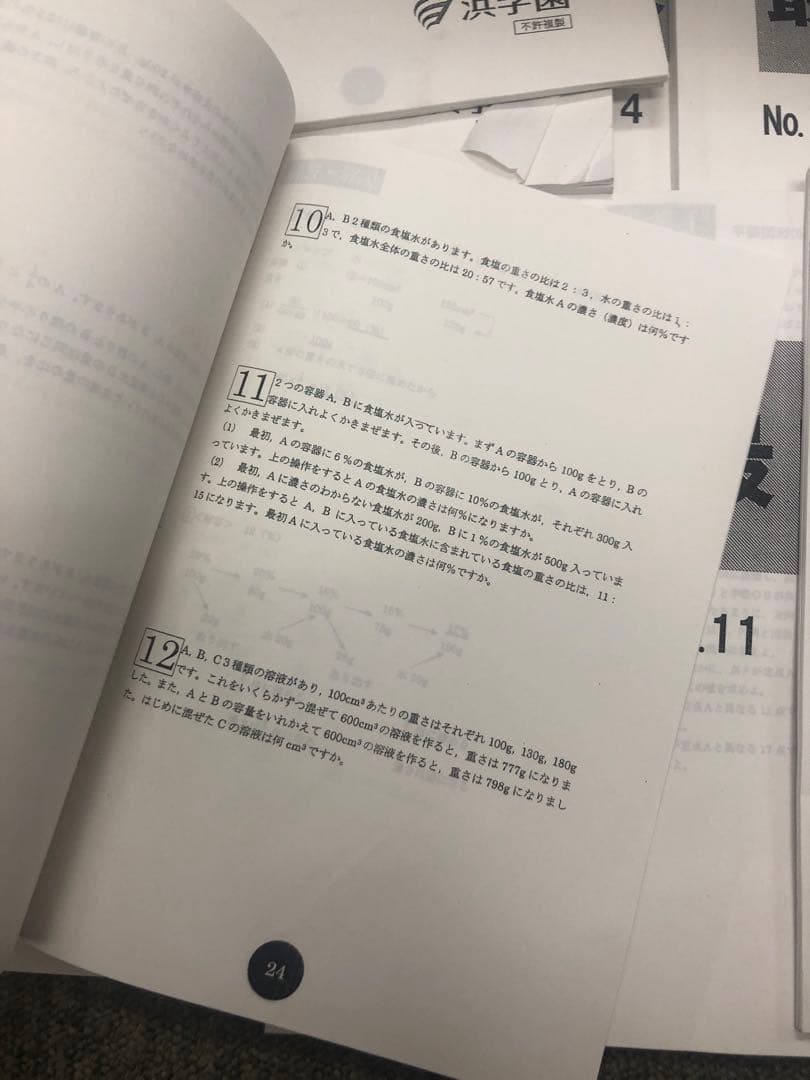 浜学園
不許複製
4
No.
.11
10 A，B2種類の食塩水があります。食塩の重さの比は2：3，水の重さの比は1：
3で，食塩水全体の重さの比は20：57です。食塩水Aの濃さ（濃度）は何％です
か。
11 2つの容器A，Bに食塩水が入っています。まずAの容器から100gをとり，Bの
容器に入れよくかきまぜます。その後，Bの容器から100gとり，Aの容器に入れ
よくかきまぜます。
(1) 最初，Aの容器に6％の食塩水が，Bの容器に10％の食塩水が，それぞれ300g入
っています。上の操作をするとAの食塩水の濃さは何％になりますか。
(2) 最初，Aに濃さのわからない食塩水が200g，Bに1％の食塩水が500g入っていま
す。上の操作をするとA，Bに入っている食塩水に含まれている食塩の重さの比は，11：
15になります。最初Aに入っている食塩水の濃さは何％ですか。
12 A，B，C3種類の溶液があり，100cm³あたりの重さはそれぞれ100g，130g，180g
です。これをいくらかずつ混ぜて600cm³の溶液を作ると，重さは777gになりま
した。また，AとBの容量をいれかえて600cm³の溶液を作ると，重さは798gになりまし
た。はじめに混ぜたCの溶液は何cm³ですか。
24